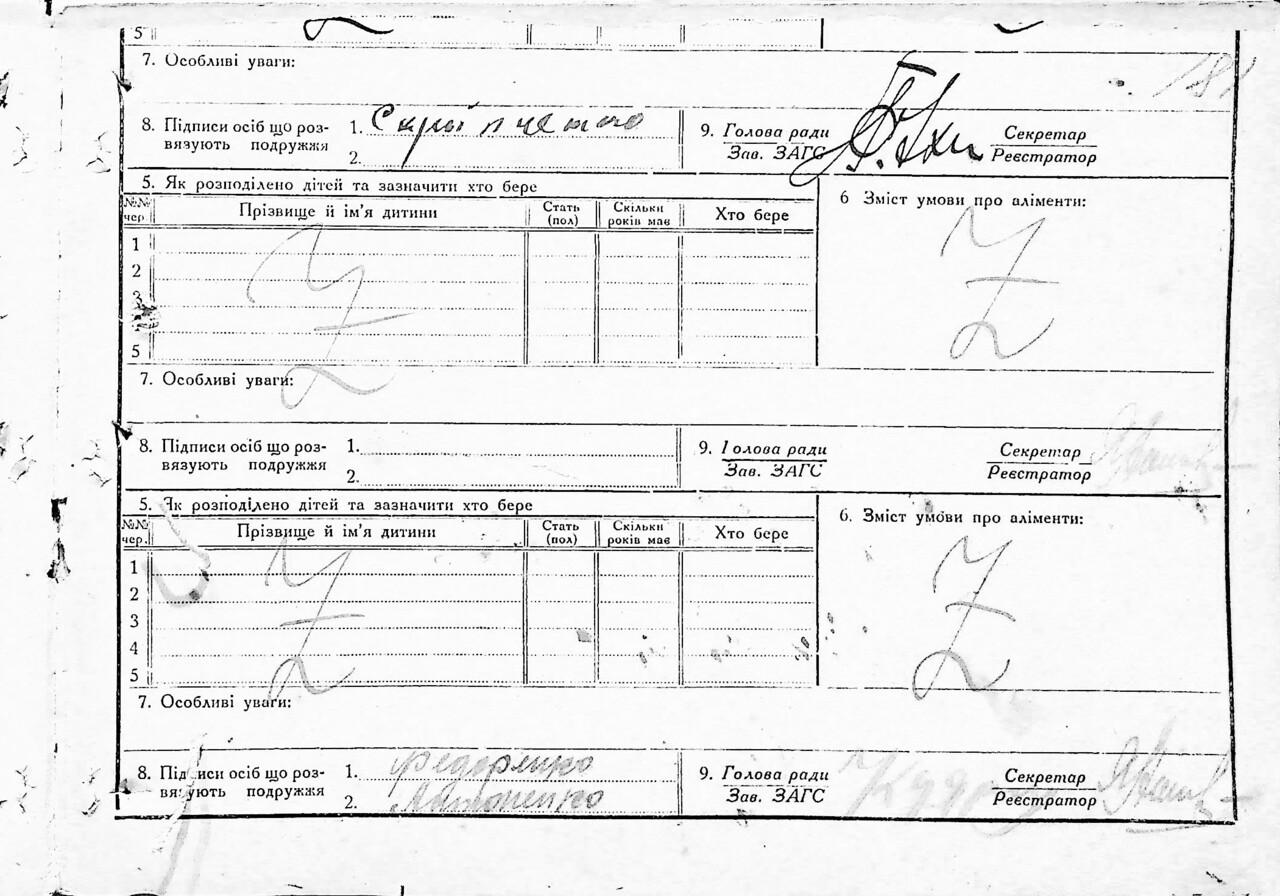 5
7. Особливі уваги:
181
8. Підписи осіб що роз-
вязують подружжя
1.
2.
9. Голова ради
Зав. ЗАГС
Секретар
Реєстратор
5. Як розподілено дітей та зазначити хто бере
№№ чер. Прізвище й ім'я дитини Стать (пол) Скільки років має Хто бере
6 Зміст умови про аліменти:
1
2
3
4
5
Z Z
7. Особливі уваги:
8. Підписи осіб що роз-
вязують подружжя
1.
2.
9. Голова ради
Зав. ЗАГС
Секретар
Реєстратор
5. Як розподілено дітей та зазначити хто бере
№№ чер. Прізвище й ім'я дитини Стать (пол) Скільки років має Хто бере
6. Зміст умови про аліменти:
1
2
3
4
5
Z Z
7. Особливі уваги:
8. Підписи осіб що роз-
вязують подружжя
1. Федоренко
2.
9. Голова ради
Зав. ЗАГС
Секретар
Реєстратор